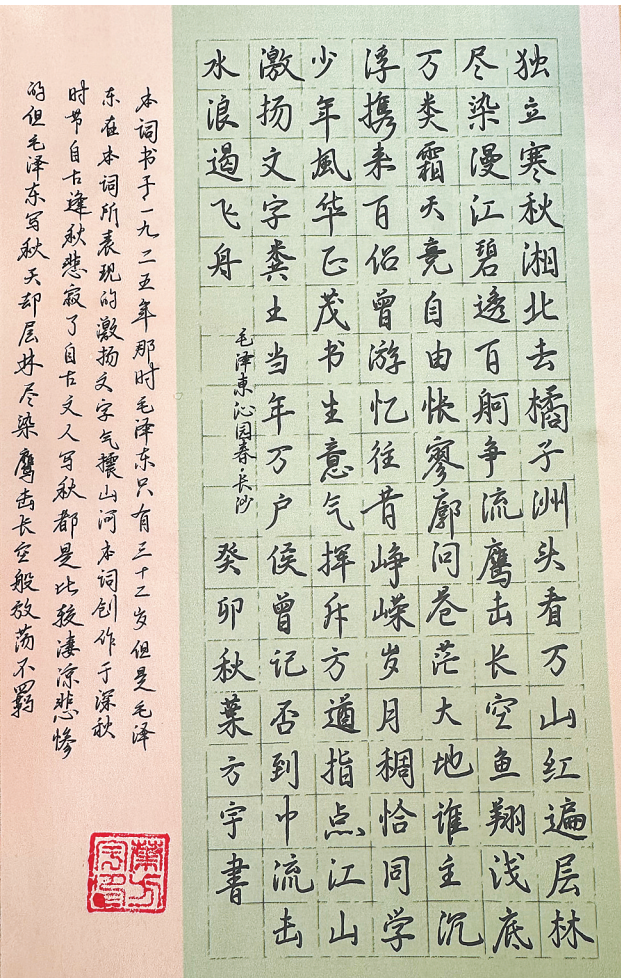 独立寒秋湘北去橘子洲头看万山红遍层林
尽染漫江碧透百舸争流鹰击长空鱼翔浅底
万类霜天竞自由怅寥廓问苍茫大地谁主沉
浮携来百侣曾游忆往昔峥嵘岁月稠恰同学
少年風华正茂书生意气挥斥方遒指点江山
激扬文字粪土当年万户侯曾记否到中流击
水浪遏飞舟
毛泽東沁园春·长沙
癸卯秋葉方宇書
本词书于一九二五年那时毛泽东只有三十二岁但是毛泽
东在本词所表现的激扬文字气攘山河本词创作于深秋
时节自古逢秋悲寂了自古文人写秋都是比较凄凉悲惨
的但毛泽东写秋天却层林尽染鹰击长空般放荡不羁
葉方
宇印